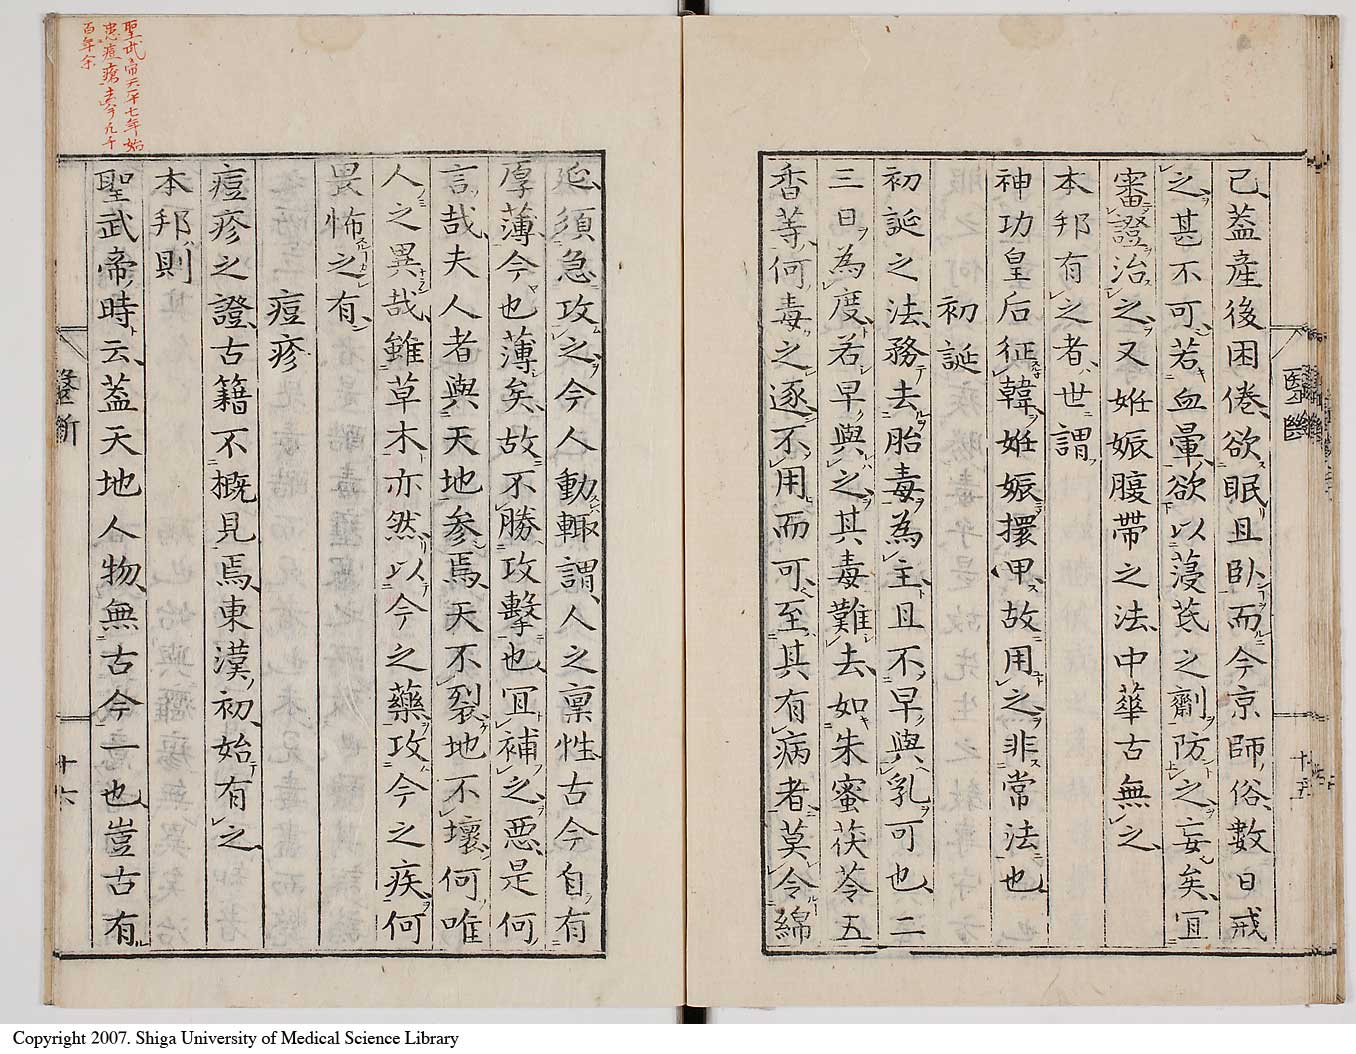 已蓋産後困倦欲眠且臥而今京師俗數日戒
之甚不可若血暈欲以蓡芪之劑防之妄矣冝
審證治之又姙娠腹帶之法中華古無之
本邦有之者世謂
神功皇后征韓姙娠擐甲故用之非常法也
初誕
初誕之法務去胎毒為主且不早與乳可也二
三日為度若早與之其毒難去如朱蜜茯苓五
香等何毒之逐不用而可至其有病者莫令綿
醫斷
十五
延須急攻之今人動輙謂人之禀性古今自有
厚薄今也薄矣故不勝攻擊也冝補之惡是何
言哉夫人者與天地参焉天不裂地不壞何唯
人之異哉雖草木亦然以今之藥攻今之疾何
畏怖之有
痘疹
痘疹之證古籍不概見焉東漢初始有之
本邦則
聖武帝時云蓋天地人物無古今一也豈古有
醫斷
十六
聖武帝天平七年始
患痘瘡至今凡千
百年余
Copyright 2007. Shiga University of Medical Science Library